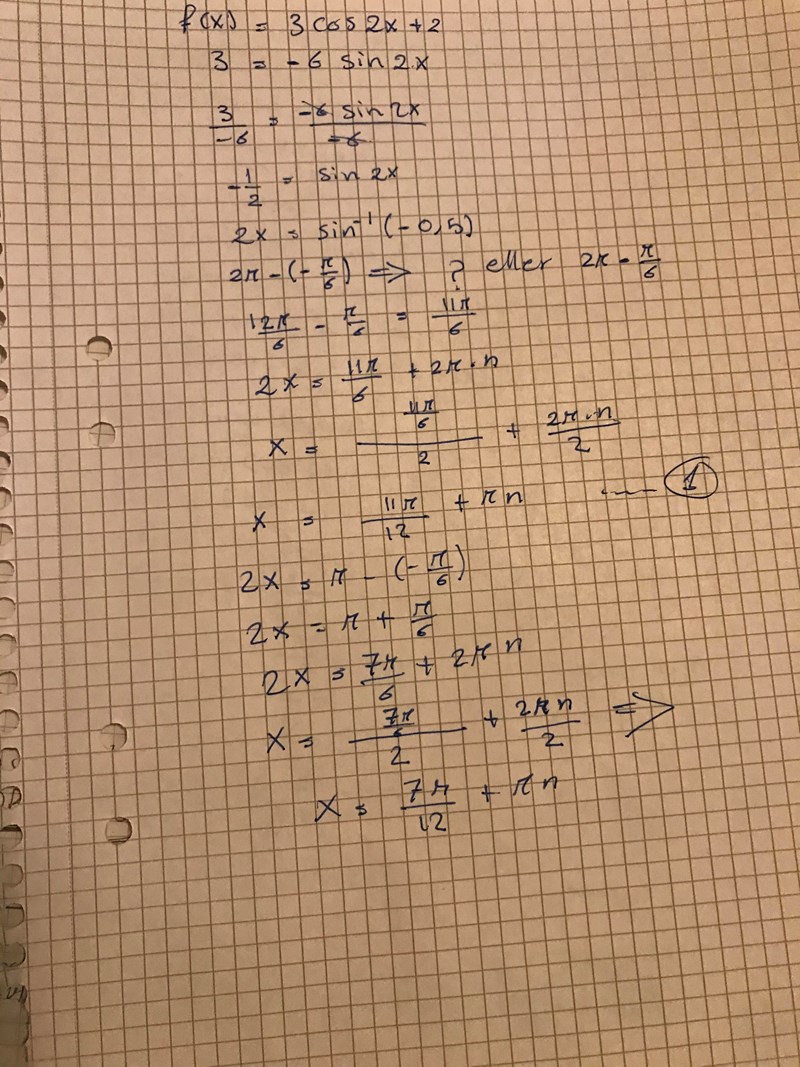 f(x) = 3 cos 2x + 2
3 = -6 sin 2x
3/-6 = -6 sin 2x/-6
-1/2 = sin 2x
2x = sin⁻¹(-0,5)
2π - (-π/6) ⇒ ? eller 2π - π/6
12π/6 - π/6 = 11π/6
2x = 11π/6 + 2π · n
x = (11π/6)/2 + 2π · n/2
x = 11π/12 + πn ---- ①
2x = π - (-π/6)
2x = π + π/6
2x = 7π/6 + 2πn
x = (7π/6)/2 + 2πn/2 ⇒
x = 7π/12 + πn